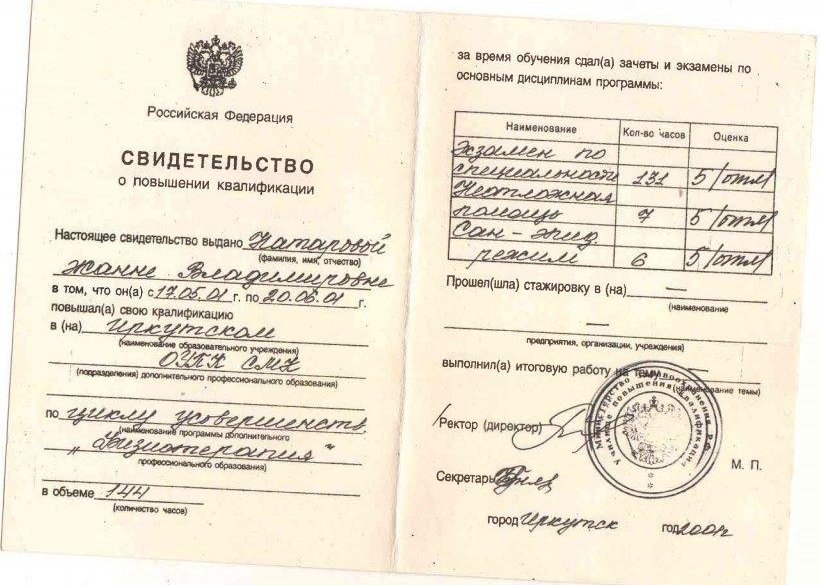 Российская Федерация
СВИДЕТЕЛЬСТВО
о повышении квалификации
Настоящее свидетельство выдано Натаровой
(фамилия, имя, отчество)
Жанне Владимировне
в том, что он(а) с 17.05.01 г. по 20.06.01 г.
повышал(а) свою квалификацию
в (на) Иркутском
(наименование образовательного учреждения)
ОУПК СМК
(подразделения) дополнительного профессионального образования)
по циклу усовершенств
(наименование программы дополнительного
„Физиотерапия“
профессионального образования)
в объеме 144
(количество часов)
за время обучения сдал(а) зачеты и экзамены по
основным дисциплинам программы:
Наименование Кол-во часов Оценка
Экзамен по
специальности 131 5/отл/
Неотложная
помощь 7 5/отл/
Сан-эпид
режим 6 5/отл/
Прошел(шла) стажировку в (на) —
(наименование
—
предприятия, организации, учреждения)
выполнил(а) итоговую работу на тему
(наименование темы)
Ректор (директор)
Министерство здравоохранения РФ
Училище повышения квалификации
М. П.
Секретарь
город Иркутск год 2001г